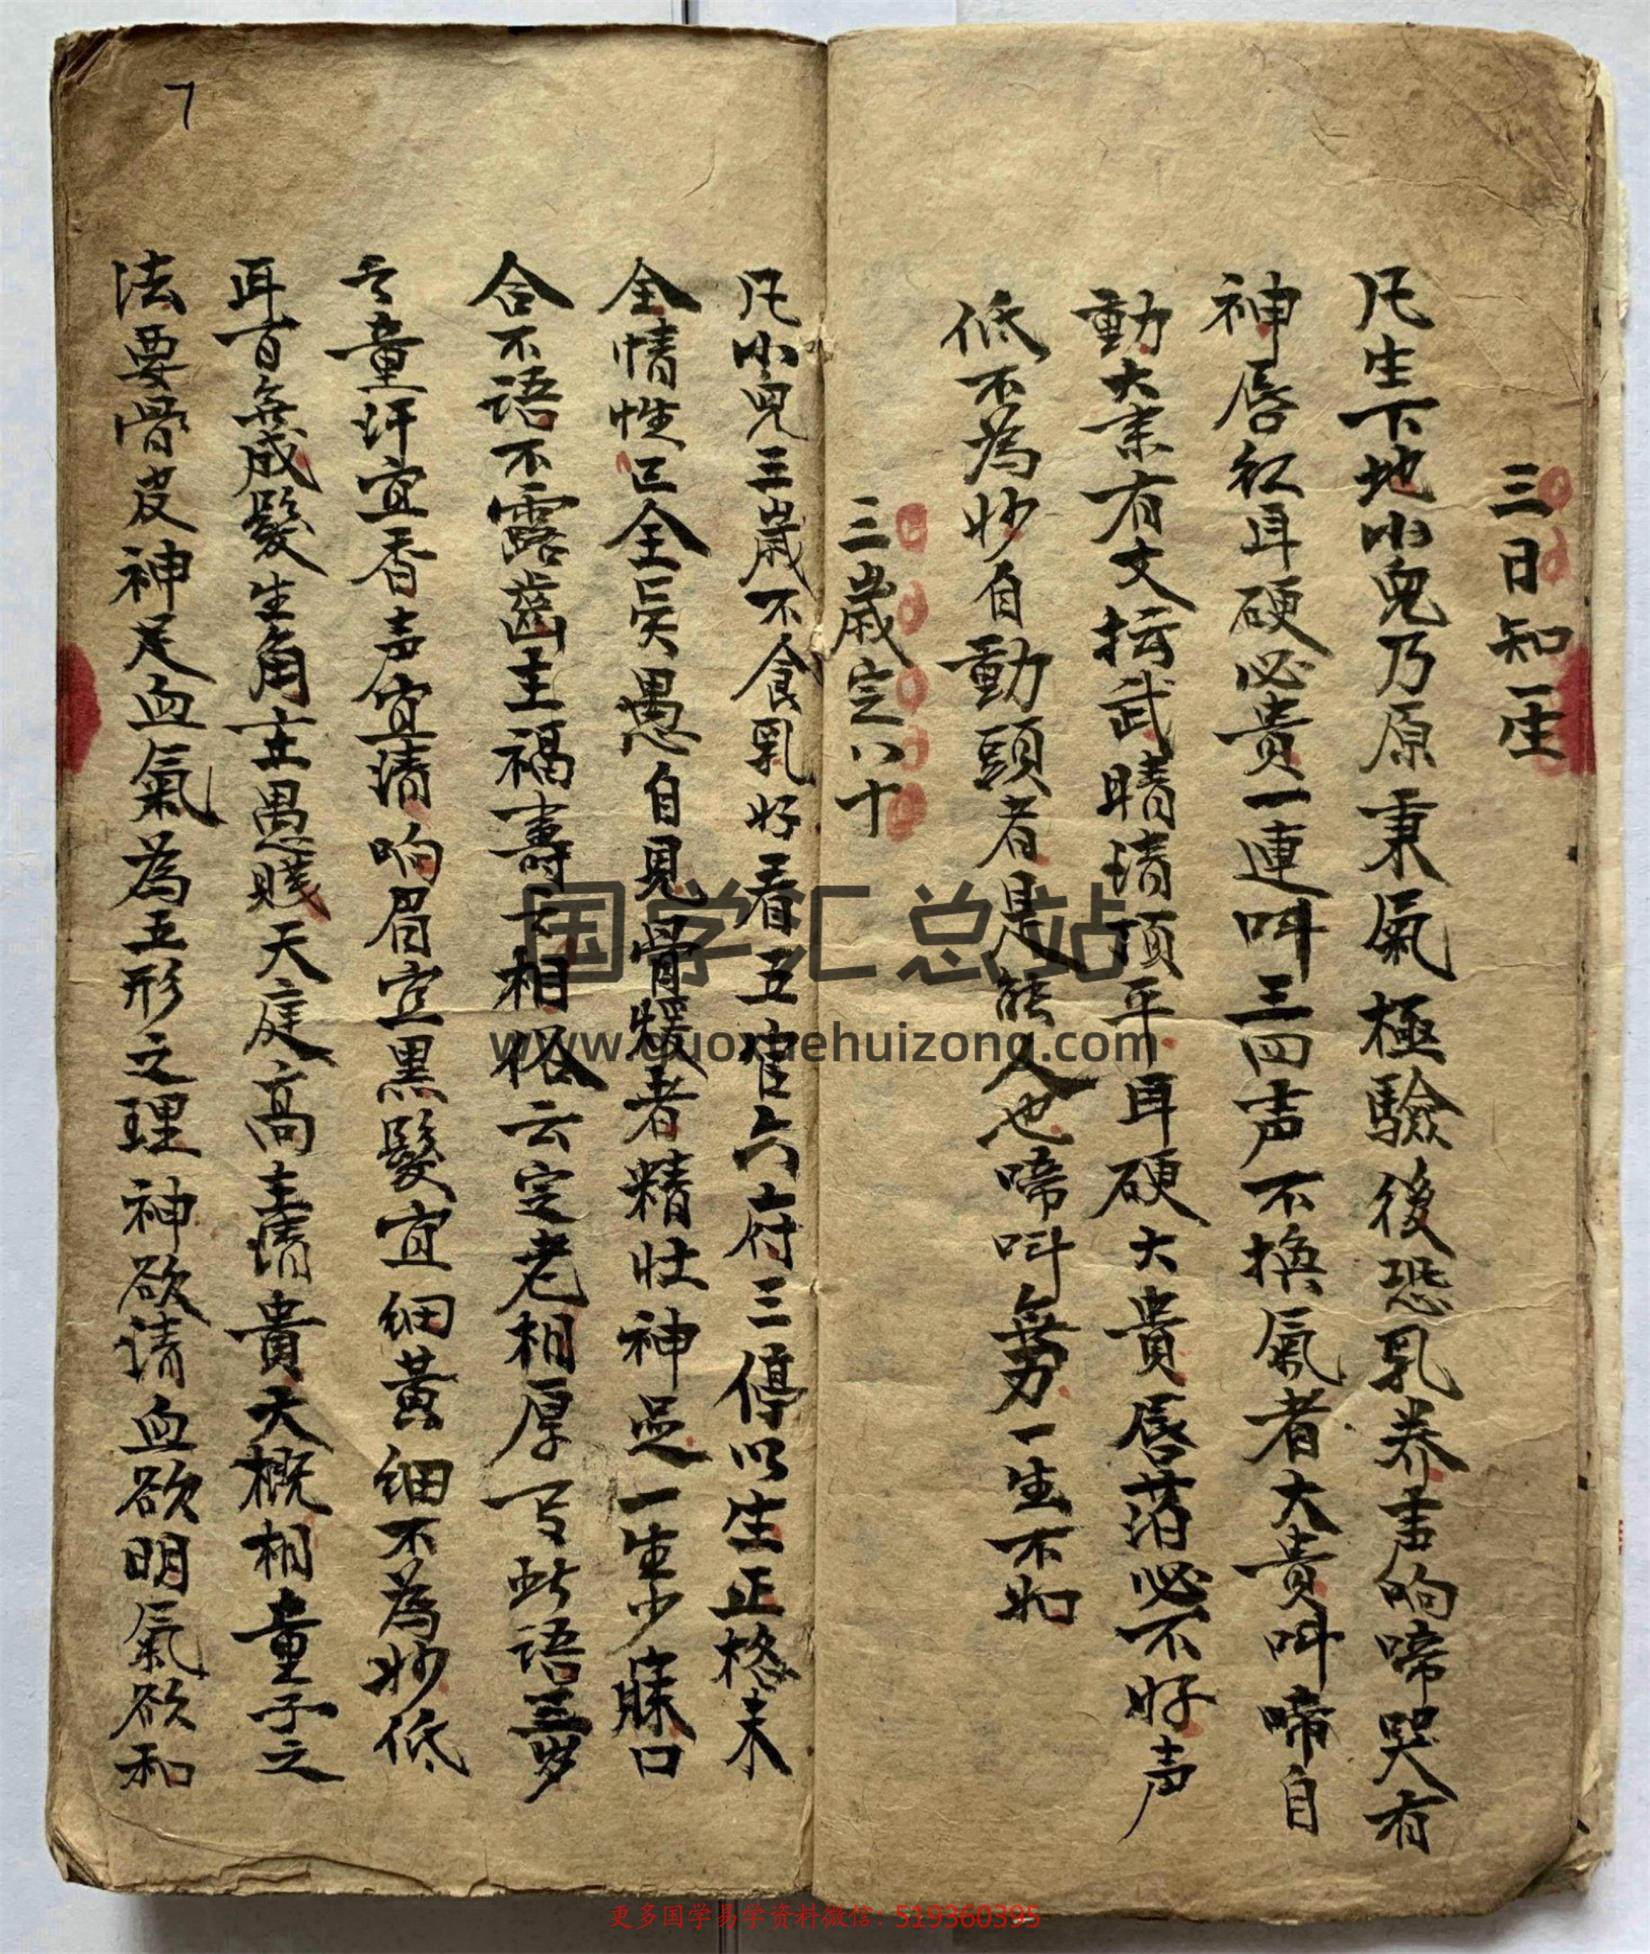 三日知一生
凡生下地小兒乃原秉氣極驗後恐乳养声响啼哭有
神唇红耳硬必贵一連叫三四声不換氣者大贵叫啼自
動大亲有文抎武睛清顶平耳硬大貴唇落必不好声
低不為妙自動頭者是能人也啼叫無力一生不如
三歲定八十
凡小兒三歲不食乳好看五官六府三停以生正格未
全情性已全賢愚自見骨緩者精壮神足一生少寐口
合不语不露齒主福壽 相俗云定老相厚 此语三岁
之童汗宜香声宜清响眉宜黑髮宜细黃细不為妙低
耳百無成髮生角主愚賤天庭高主清貴大概相童子之
法要骨皮神足血氣為五形之理神欲清血欲明氣欲和
7
国学汇总站
www.guoxuehuizong.com
更多国学易学资料微信：519360395